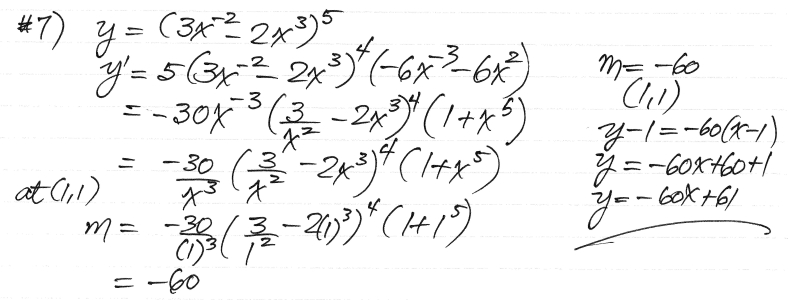 #7) y = (3x⁻² - 2x³)⁵
y' = 5(3x⁻² - 2x³)⁴(-6x⁻³ - 6x²)
= -30x⁻³(3/x² - 2x³)⁴(1+x⁵)
= -30/x³ (3/x² - 2x³)⁴(1+x⁵)
at (1,1)
m = -30/(1)³ (3/1² - 2(1)³)⁴(1+1⁵)
= -60
m = -60
(1,1)
y-1 = -60(x-1)
y = -60x+60+1
y = -60x+61